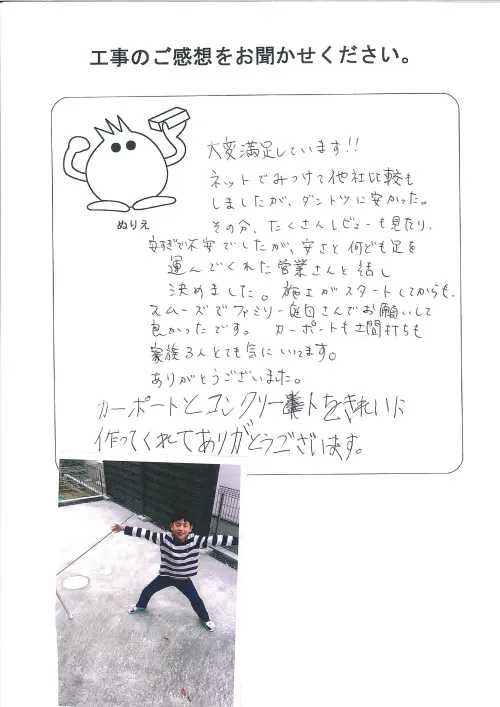 工事のご感想をお聞かせください。
大変満足しています!!
ネットでみつけて他社比較も
しましたが、ダントツに安かった。
ぬりえ
その分、たくさんレビューも見たり、
安すぎで不安でしたが、安さと何ども足を
運んでくれた営業さんと話し
決めました。施工がスタートしてからも、
スムーズでファミリー庭園さんでお願いして
良かったです。カーポートも土間打ちも
家族3人とても気にいってます。
ありがとうございました。
カーポートとコンクリートをきれいに
作ってくれてありがとうございます。